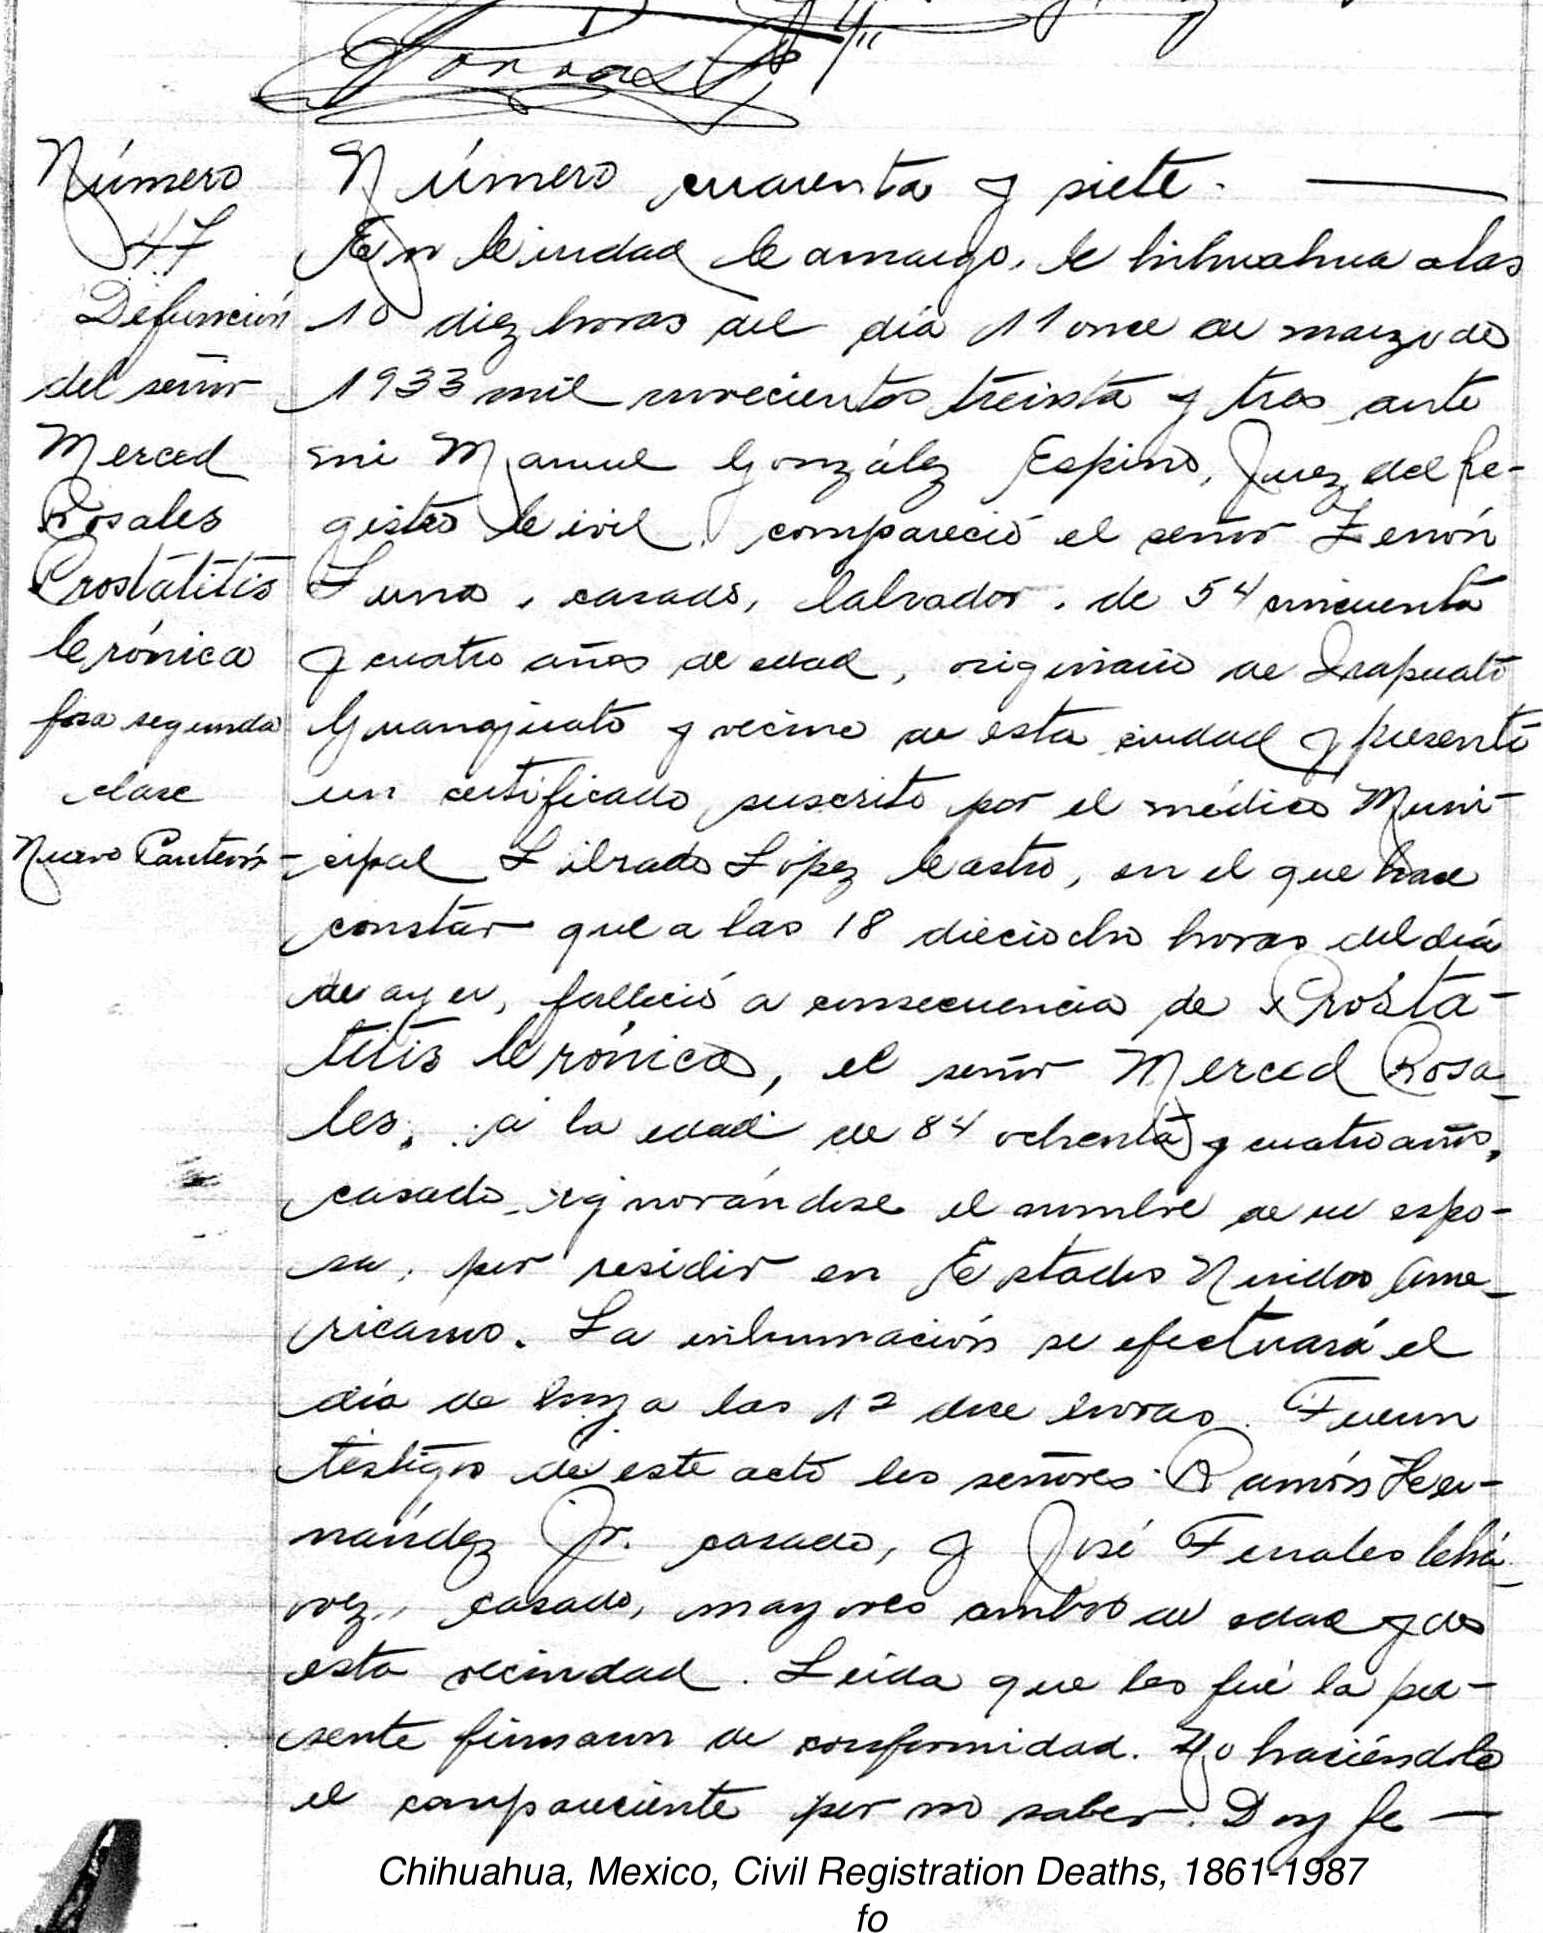 Porras
Número
47
Defunción
del señor
Merced
Rosales
Prostatitis
Crónica
fosa segunda
clase
Nuevo Panteón
Número cuarenta y siete.
En Ciudad Camargo, Chihuahua a las
10 diez horas del día 11 once de marzo de
1933 mil novecientos treinta y tres ante
mi Manuel González Espino, Juez del Re-
gistro Civil, compareció el señor Zenón
Luna, casado, labrador, de 54 cincuenta
y cuatro años de edad, originario de Irapuato
Guanajuato y vecino de esta ciudad y presentó
un certificado suscrito por el médico Muni-
cipal Librado López Castro, en el que hace
constar que a las 18 dieciocho horas del día
de ayer, falleció a consecuencia de Prosta-
titis Crónica, el señor Merced Rosa-
les, a la edad de 84 ochenta y cuatro años,
casado ignorándose el nombre de su espo-
sa, por residir en Estados Unidos Ame-
ricano. La inhumación se efectuará el
día de hoy a las 12 doce horas. Fueron
testigos de este acto los señores Ramón Her-
nández Jr. casado, y José Terrales Chá-
vez, casado, mayores ambos de edad y de
esta vecindad. Leída que les fué la pre-
sente firmaron de conformidad. No haciéndolo
el compareciente por no saber. Doy fe
Chihuahua, Mexico, Civil Registration Deaths, 1861-1987
fo